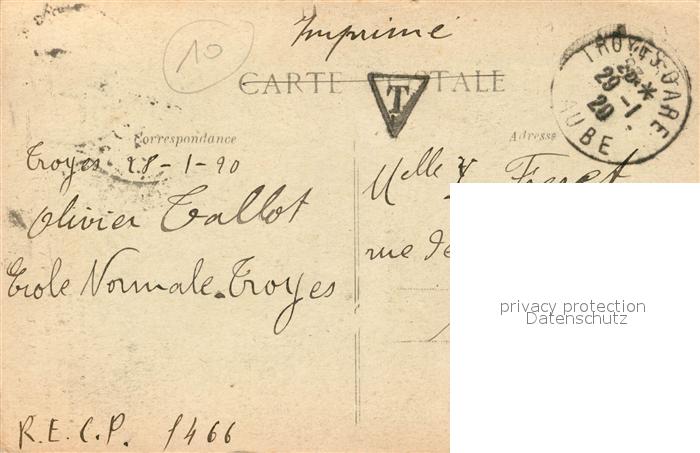 Imprimé
10
CARTE POSTALE
T
TROYES-GARE
29-1
20
AUBE
Correspondance
Adresse
Troyes 28-1-20
Olivier Tallot
Ecole Normale. Troyes
R.E.C.P. 1466
Melle Y. Feret
rue
privacy protection
Datenschutz